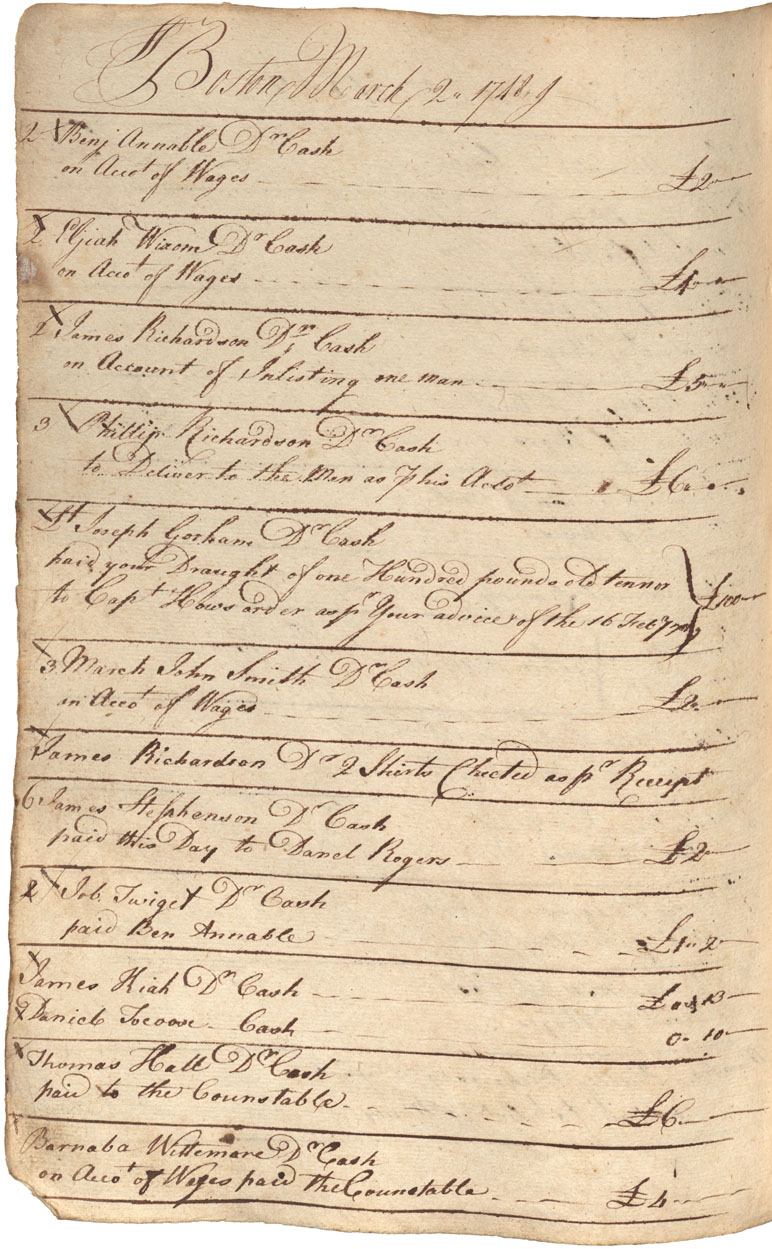 Boston March 2 " 1748/9
2 X Benj Annable Dr Cash
on Accot of Wages £2
2 X Elijah Wixom Dr Cash
on Accot of Wages £4
X James Richardson Dr Cash
on Account of Inlisting one man £5
3 Phillip Richardson Dr Cash
to Deliver to the Men as p his Accot £6
Lt Joseph Gorham Dr Cash
paid your Draught of one Hundred pounds old tennor £100
to Capt Hows order as pr Your advice of the 16 Feby
3 March John Smith Dr Cash
on Accot of Wages £2
James Richardson Dr 2 Shirts Chected as pr Receipt
6 James Stephenson Dr Cash
paid this Day to Danel Rogers £2
8 Job Twiget Dr Cash
paid Ben Annable £1 " 2
James Hiah Dr Cash £0 " 13
Daniel Tocoose Cash 0 " 10
X Thomas Hall Dr Cash
paid to the Counstable £6
Barnaba Wittemore Dr Cash
on Accot of Wages paid the Counstable £4